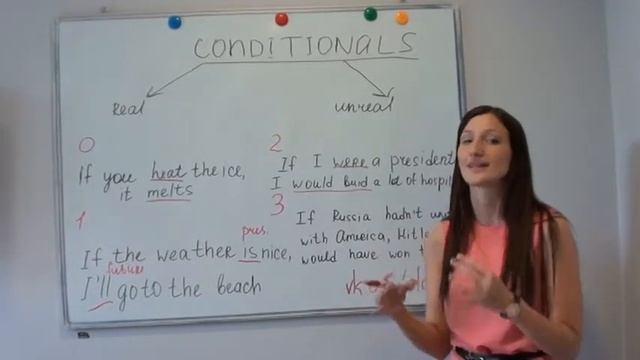 CONDITIONALS
Real
unreal
0
If you heat the ice,
it melts
1
pres.
If the weather is nice,
future
I'll go to the beach
2
If I were a president
I would build a lot of
3
If Russia hadn't
with America,
would have won